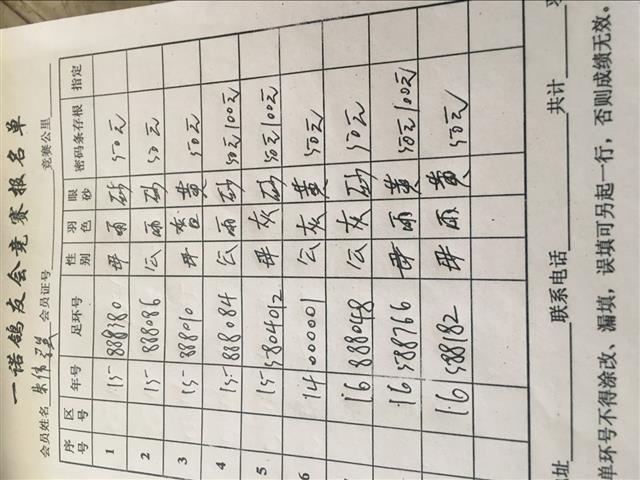 一诺鸽友会竞赛报名单
会员姓名 朱伟 会员证号 竞赛公里
序号 区号 年号 足环号 性别 羽色 眼砂 密码条存根 指定
1 15 888380 雨 砂 50元
2 15 888086 公 雨 砂 50元
3 15 888010 黄 50元
4 15 888084 公 雨 砂 50元100元
5 15 5804012 灰 砂 50元100元
6 14 00001 公 灰 黄 50元
16 888048 公 灰 砂 50元
16 588766 雨 黄 50元100元
16 588182 雨 黄 50元
地址 联系电话 共计
单环号不得涂改、漏填，误填可另起一行，否则成绩无效。